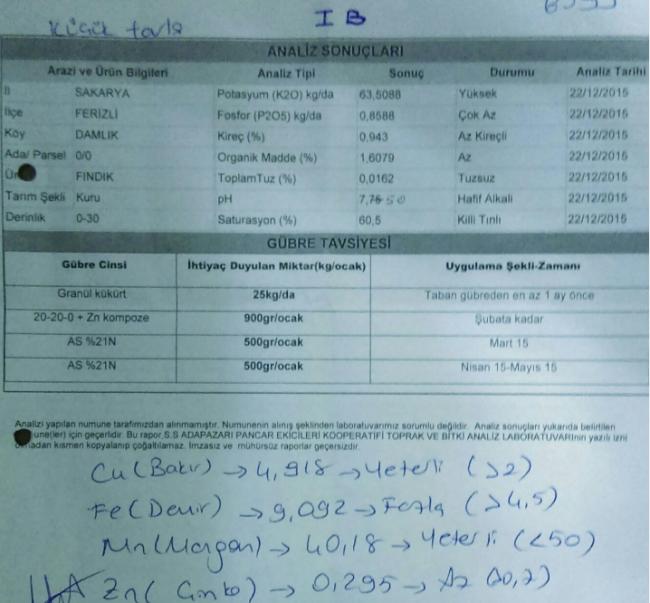 Küçük tarla I B
ANALİZ SONUÇLARI
Arazi ve Ürün Bilgileri Analiz Tipi Sonuç Durumu Analiz Tarihi
İl SAKARYA Potasyum (K2O) kg/da 63,5088 Yüksek 22/12/2015
İlçe FERİZLİ Fosfor (P2O5) kg/da 0,8588 Çok Az 22/12/2015
Köy DAMLIK Kireç (%) 0,943 Az Kireçli 22/12/2015
Ada/ Parsel 0/0 Organik Madde (%) 1,6079 Az 22/12/2015
FINDIK ToplamTuz (%) 0,0162 Tuzsuz 22/12/2015
Tarım Şekli Kuru pH 7,75 50 Hafif Alkali 22/12/2015
Derinlik 0-30 Saturasyon (%) 60,5 Killi Tınlı 22/12/2015
GÜBRE TAVSİYESİ
Gübre Cinsi İhtiyaç Duyulan Miktar(kg/ocak) Uygulama Şekli-Zamanı
Granül kükürt 25kg/da Taban gübreden en az 1 ay önce
20-20-0 + Zn kompoze 900gr/ocak Şubata kadar
AS %21N 500gr/ocak Mart 15
AS %21N 500gr/ocak Nisan 15-Mayıs 15
Analizi yapılan numune tarafımızdan alınmamıştır. Numunenin alınış şeklinden laboratuvarımız sorumlu değildir. Analiz sonuçları yukarıda belirtilen
geçerlidir. Bu rapor S.S ADAPAZARI PANCAR EKİCİLERİ KOOPERATİFİ TOPRAK VE BİTKİ ANALİZ LABORATUVARInın yazılı izni
olmadan kısmen kopyalanıp çoğaltılamaz. İmzasız ve mühürsüz raporlar geçersizdir.
Cu (Bakır) → 4,918 → Yeterli (>2)
Fe (Demir) → 9,092 → Fazla (>4,5)
Mn (Mangan) → 40,18 → Yeterli (<50)
Zn (Çinko) → 0,295 → Az